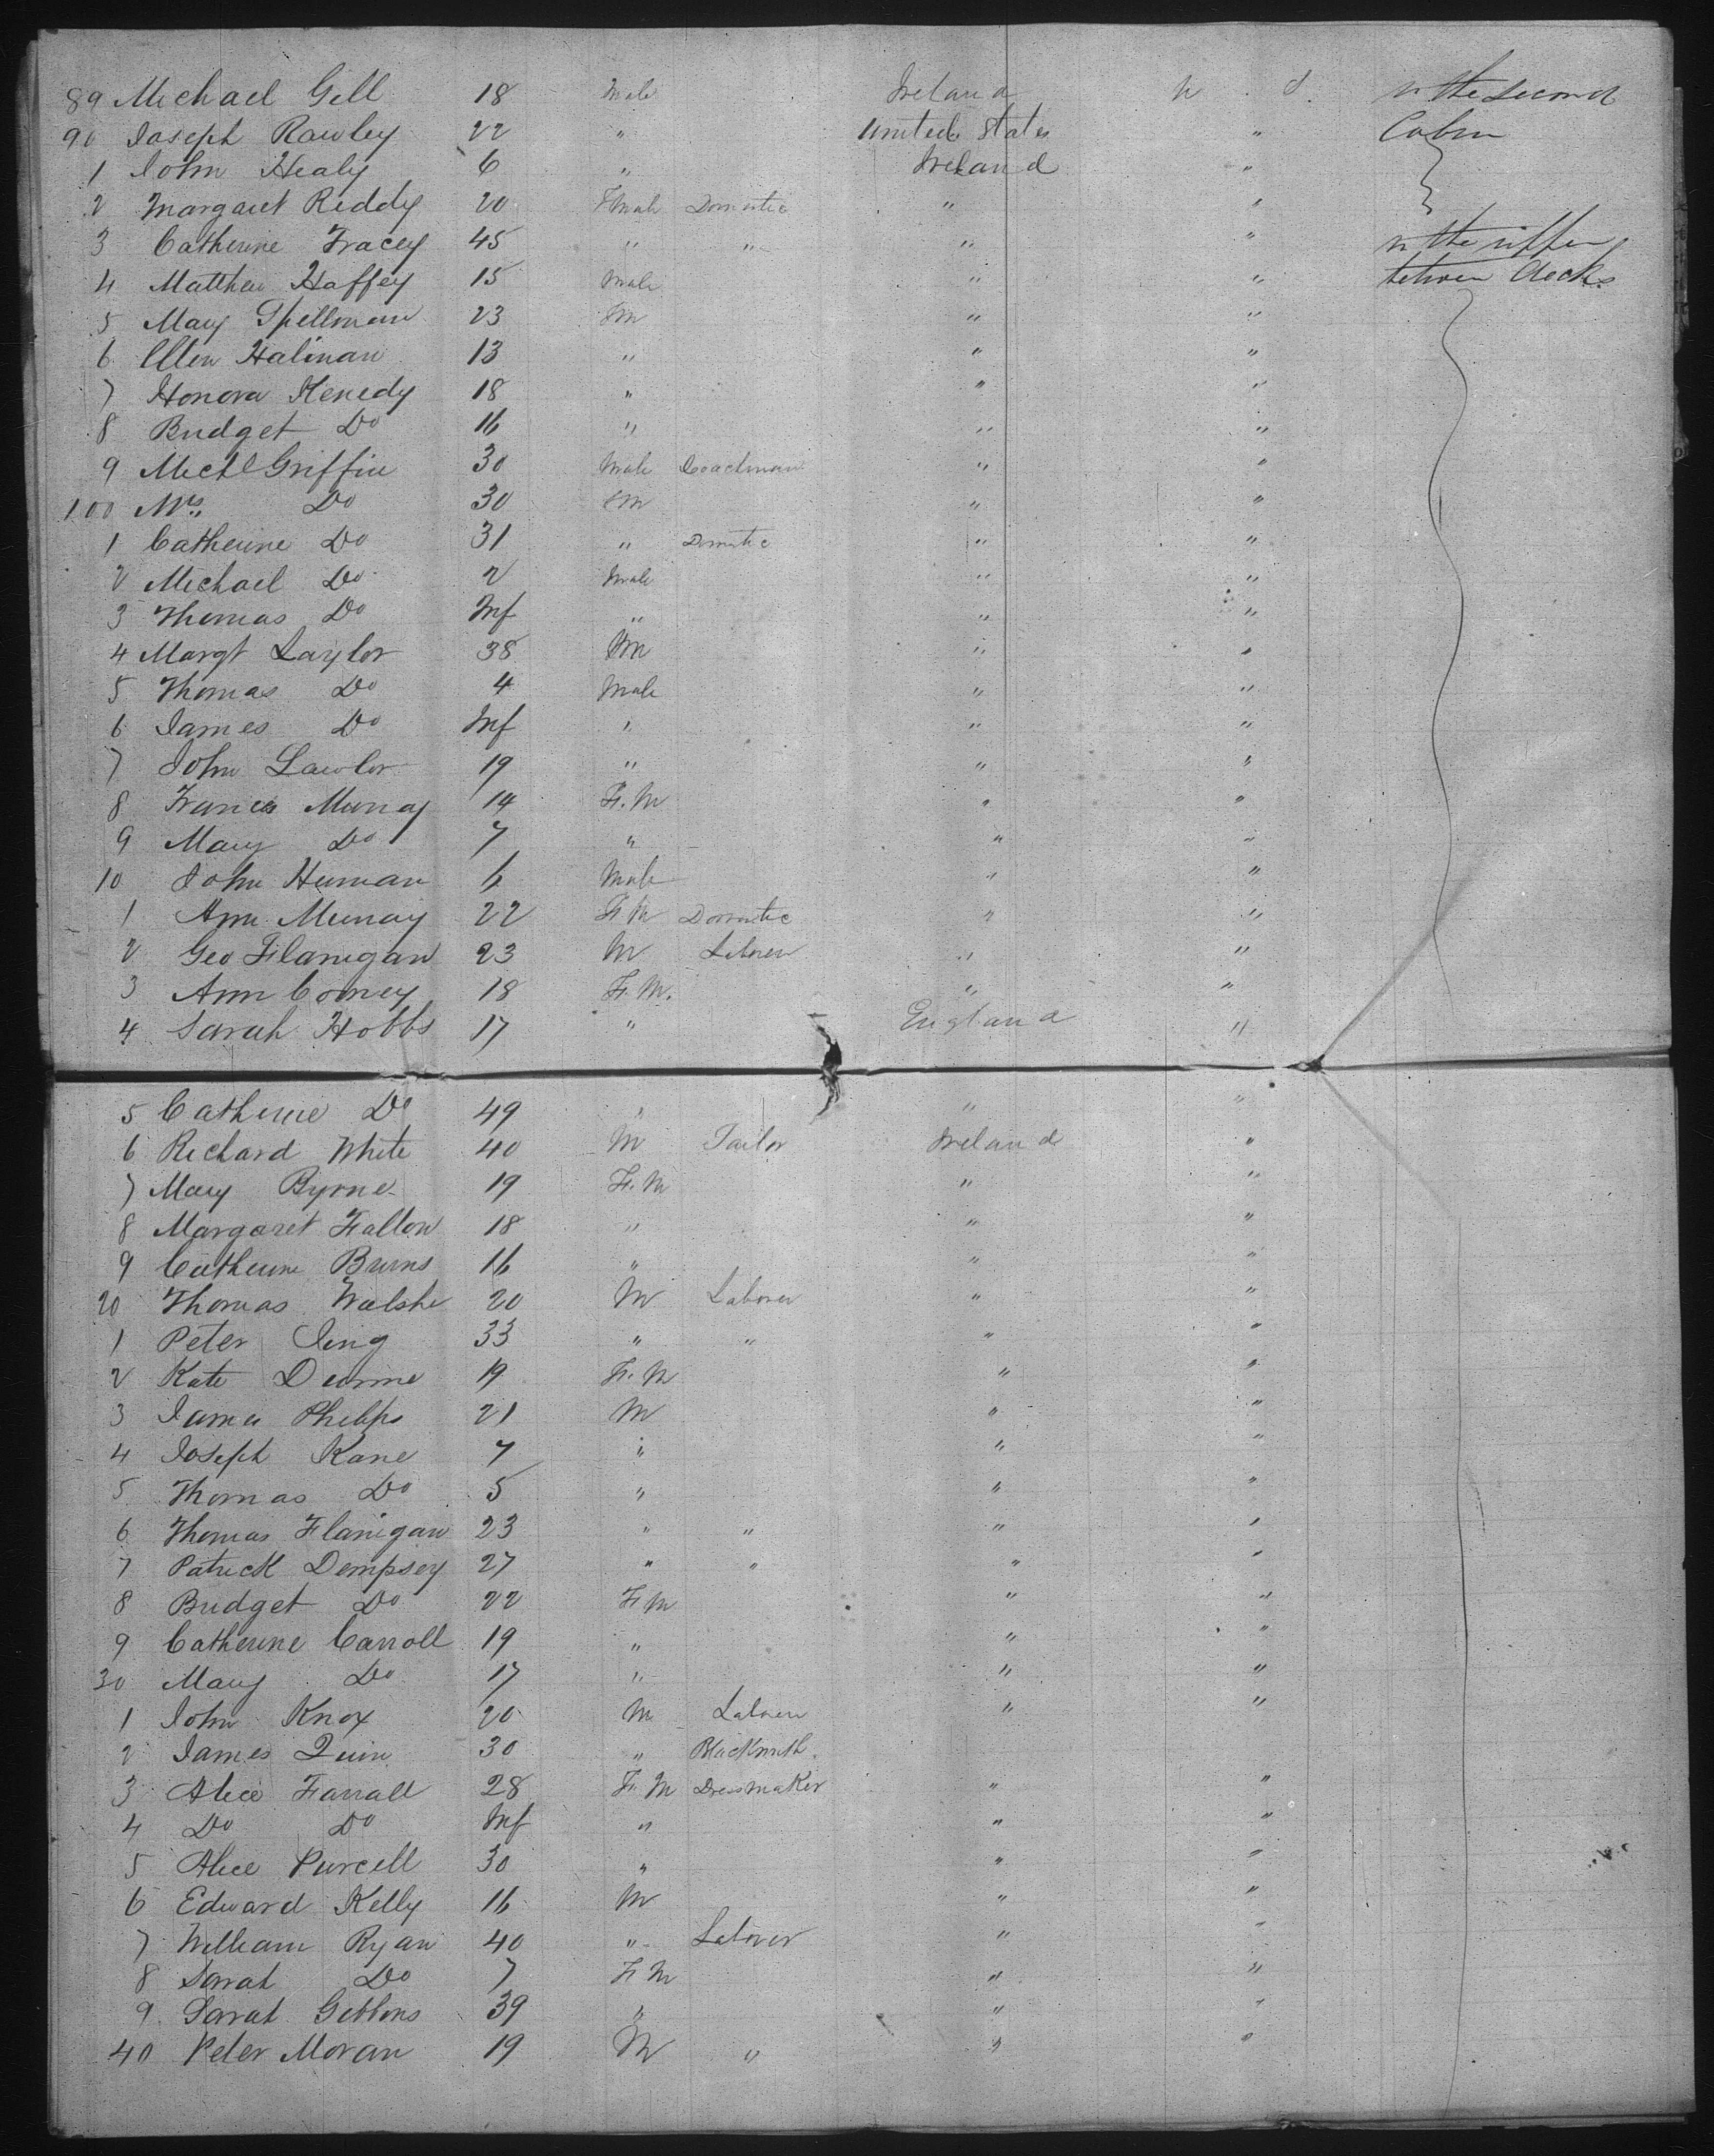 89 Michael Gill 18 Male Ireland U. S. in the second
90 Joseph Rawley 22 " United States " Cabin
1 John Healy 6 " Ireland "
2 Margaret Reddy 20 Fmale Domestic " "
3 Catherine Tracey 45 " " " " in the upper
4 Matthew Haffey 15 Male " " between decks
5 Mary Spellman 23 FM " "
6 Ellen Halinan 13 " " "
7 Honora Kenedy 18 " " "
8 Bridget Do 16 " " "
9 Michl Griffin 30 Male Coachman " "
100 Mrs. Do 30 FM " "
1 Catherine Do 31 " Domestic " "
2 Michael Do 2 Male " "
3 Thomas Do Inf " " "
4 Margt Laylor 38 FM " "
5 Thomas Do 4 Male " "
6 James Do Inf " " "
7 John Lawlor 19 " " "
8 Frances Murray 14 F.M " "
9 Mary Do 7 " " "
10 John Human 6 Male " "
1 Ann Murray 22 F M Domestic " "
2 Geo Flanigan 23 M Laborer " "
3 Ann Comey 18 F.M. " "
4 Sarah Hobbs 17 " England "
5 Catherine Do 49 " " "
6 Richard White 40 M Tailor Ireland "
7 Mary Byrne 19 F.M " "
8 Margaret Fallon 18 " " "
9 Catherine Burns 16 " " "
20 Thomas Walshe 20 M Laborer " "
1 Peter 33 " " " "
2 Kate Dunne 19 F.M " "
3 James Phelps 21 M " "
4 Joseph Kane 7 " " "
5 Thomas Do 5 " " "
6 Thomas Flanigan 23 " " " "
7 Patrick Dempsey 27 " " " "
8 Bridget Do 22 F M " "
9 Catherine Carroll 19 " " "
30 Mary Do 17 " " "
1 John Knox 20 M Laborer " "
2 James Quin 30 " Blacksmith
3 Alice Farrall 28 F.M Dressmaker " "
4 Do Do Inf " " "
5 Alice Purcell 30 " " "
6 Edward Kelly 16 M " "
7 William Ryan 40 " Laborer " "
8 Sarah Do 7 F M " "
9 Sarah Gibbons 39 " " "
40 Peter Moran 19 M " " "